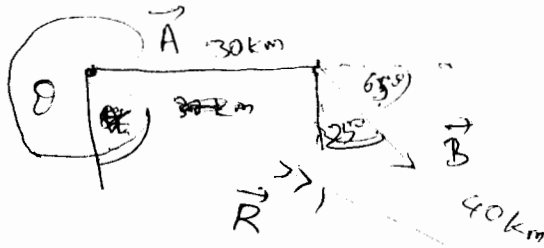 A⃗ 30km
θ
65°
25°
B⃗
R⃗
40km